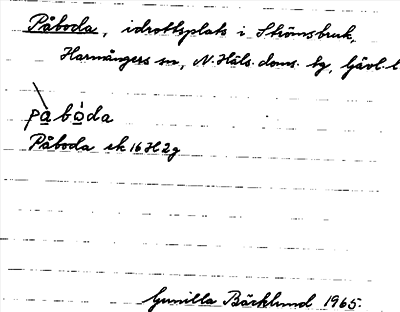 Påboda, idrottsplats i Strömsbruk,
Harmångers sn, N. Häls. doms. tg, Gävl. l
påbòda
Påboda ek 16H2g
Gunilla Bäcklund 1965.